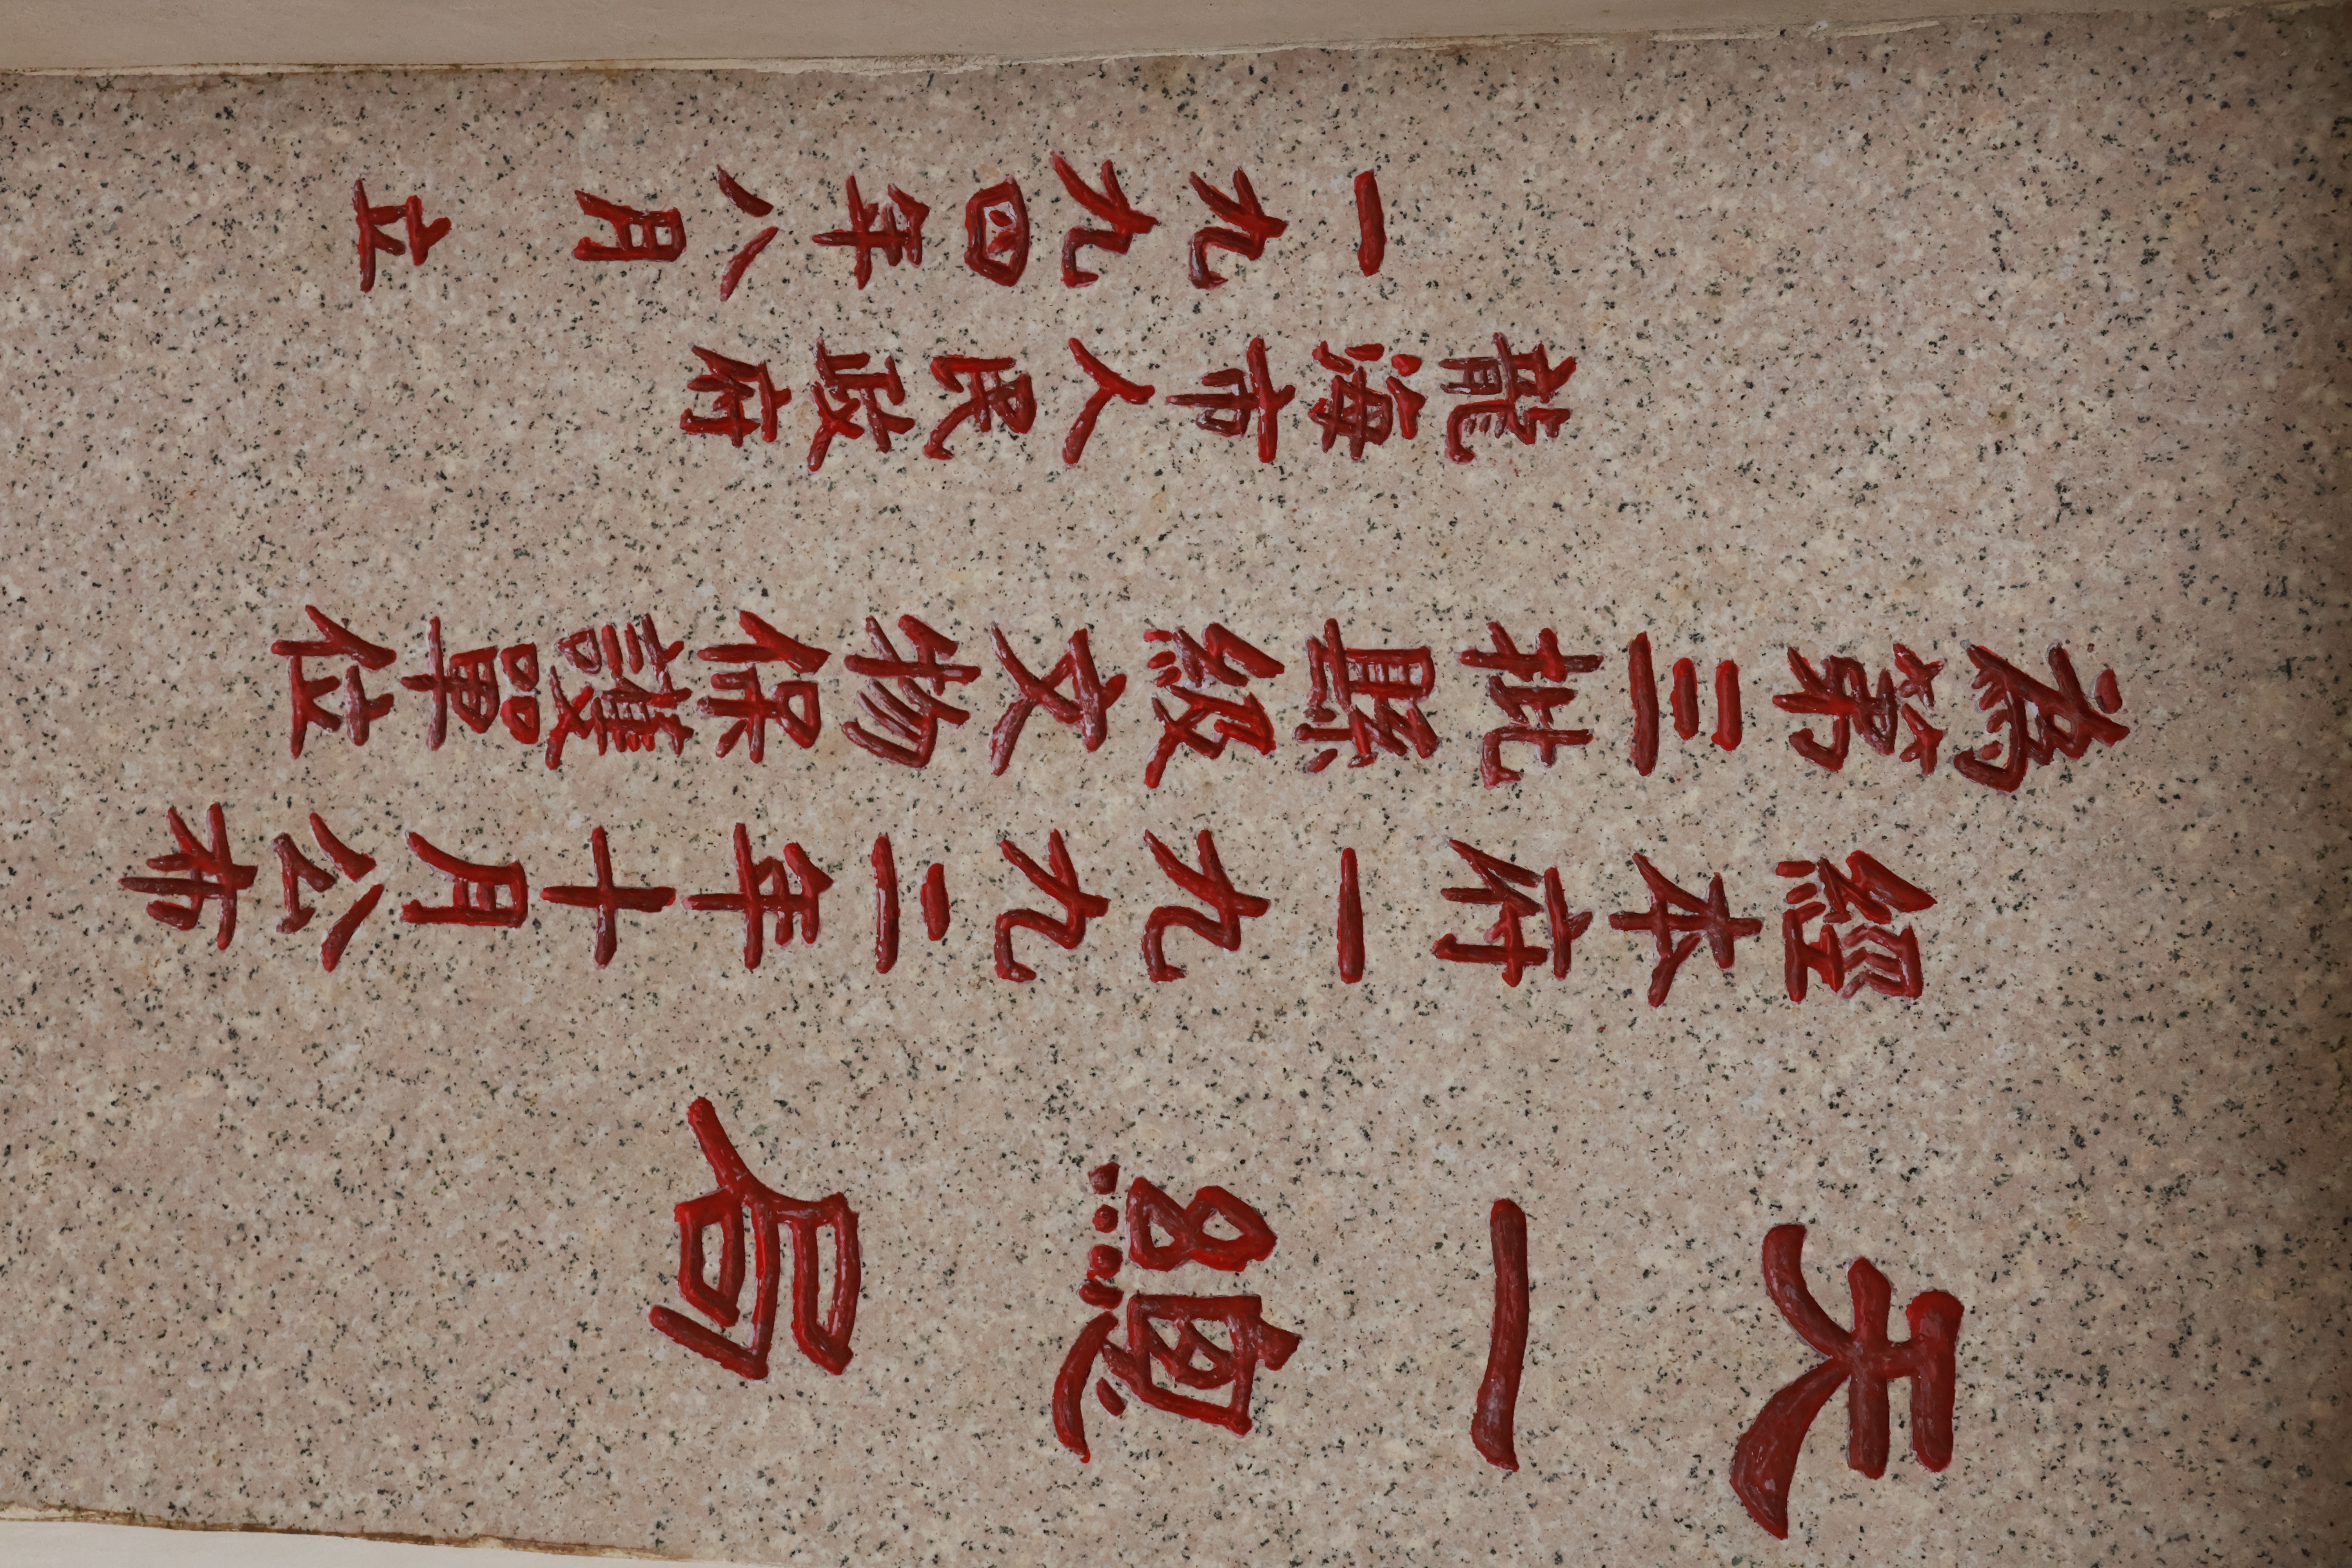 天一總局
經本府一九九二年十月公布
為第三批縣級文物保護單位
龍海市人民政府
一九九四年八月立